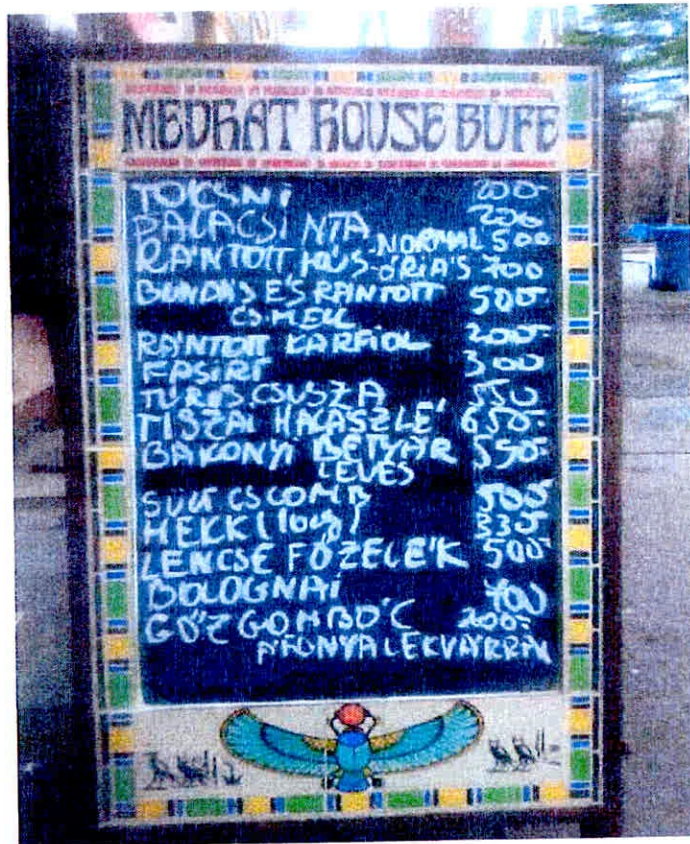 MEDHAT HOUSE BÜFÉ
TOCSNI 200-
PALACSINTA 200
RÁNTOTT HÚS -NORMÁL 500
-ÓRIÁS 700
BUNDÁS ÉS RÁNTOTT 500-
CS.MELL
RÁNTOTT KARFIOL 200-
FASÍRT 300
TÚRÓS CSUSZA 550
TISZAI HALÁSZLÉ 650-
BAKONYI BETYÁR 550-
LEVES
SÜLT CSCOMB 500-
HEKK
LENCSE FŐZELÉK 500-
BOLOGNAI 400
GŐZGOMBÓC 200-
ÁFONYALEKVÁRRAL